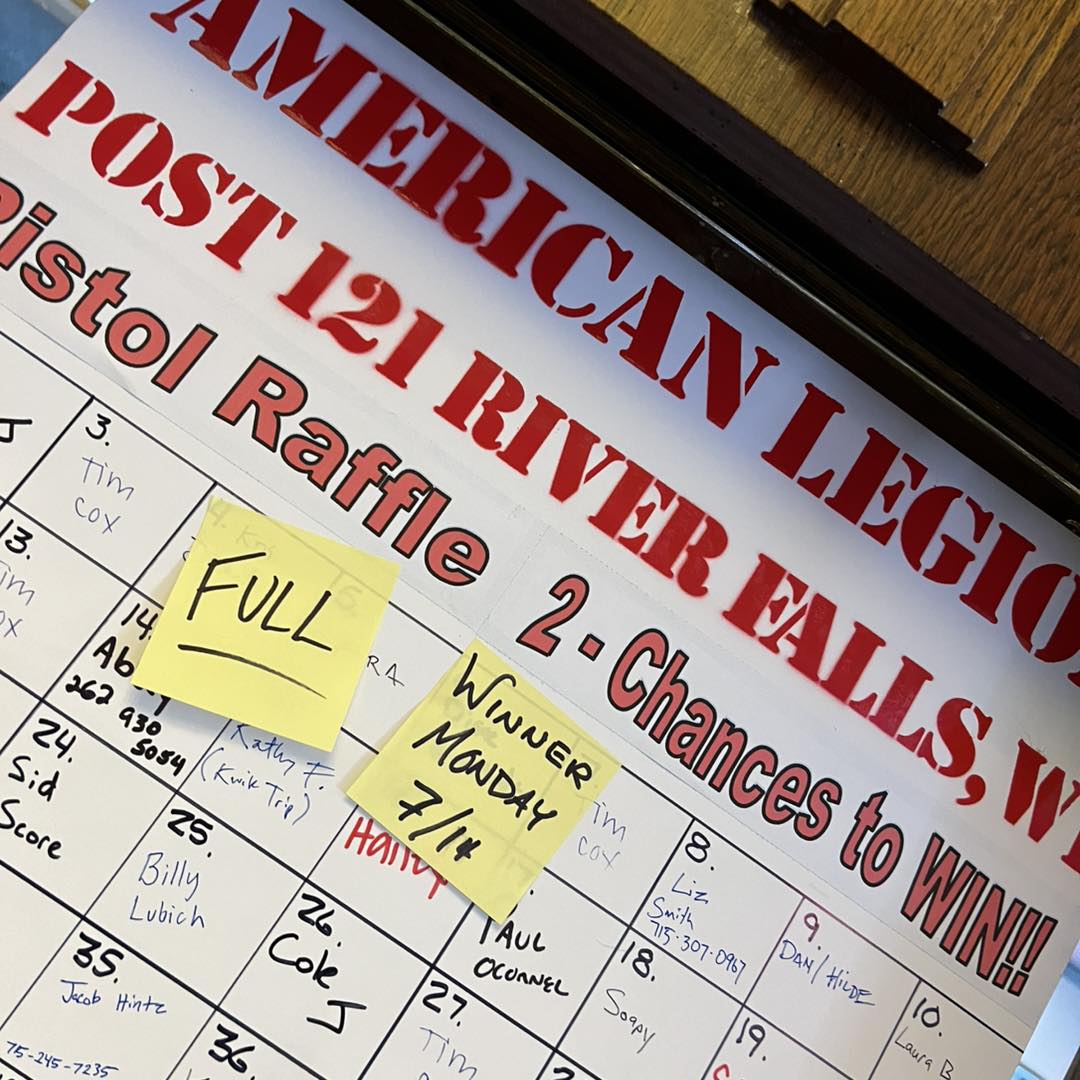 AMERICAN LEGIO
POST 121 RIVER FALLS, WI
Pistol Raffle 2 - Chances to WIN!!
FULL
WINNER
MONDAY
7/14
J
3.
Tim
Cox
RA
Tim
Cox
8.
Liz
Smith
715-307-0967
9.
DAN/HILDE
10.
Laura B
13.
Tim
ox
14.
262 930
5054
Kathy F.
(Kwik Trip)
PAUL
OCONNEL
18.
Soapy
19.
24.
Sid
Score
25.
Billy
Lubich
26.
Cole
J
27.
Tim
35.
Jacob Hintz
75-245-7235
36